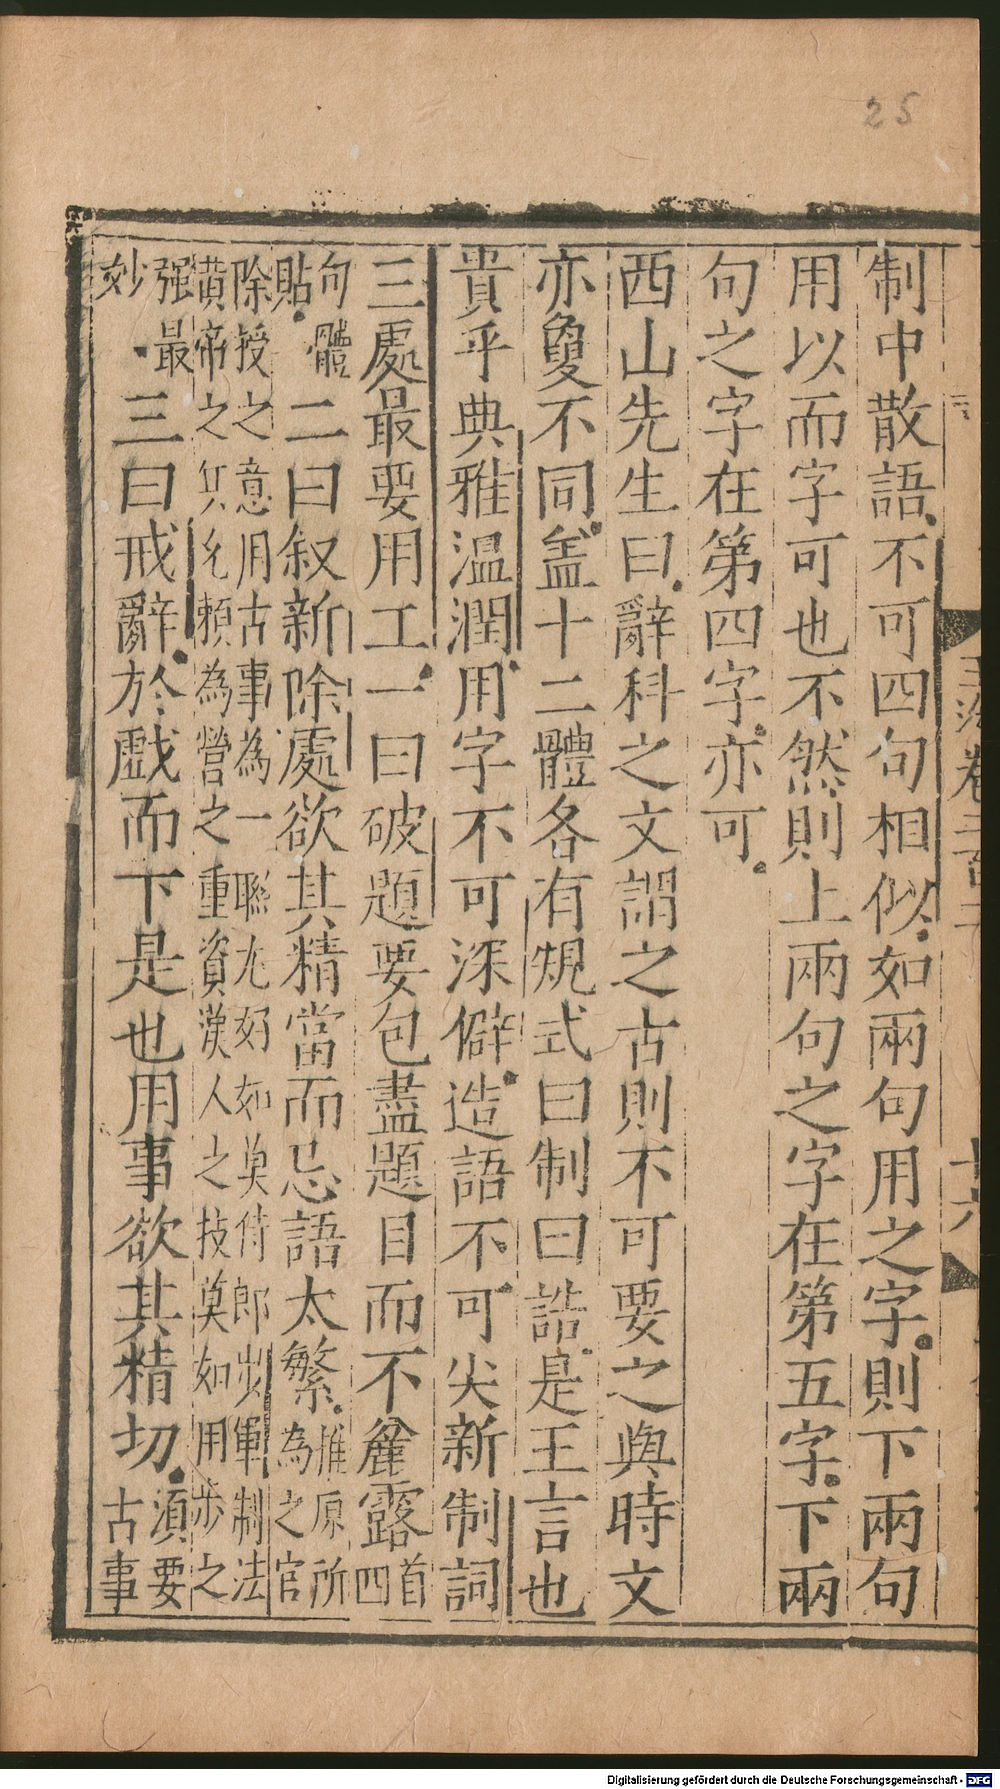 25
制中散語不可四句相似如兩句用之字則下兩句
用以而字可也不然則上兩句之字在第五字下兩
句之字在第四字亦可
西山先生曰辭科之文謂之古則不可要之與時文
亦敻不同盖十二體各有規式曰制曰誥是王言也
貴乎典雅温潤用字不可深僻造語不可尖新制詞
三處最要用工一曰破題要包盡題目而不麄露首四
句體貼
二曰叙新除處欲其精當而忌語太繁推原所為之官
除授之意用古事為一聯尤好如莫侍郎步軍制法
黄帝之兵允賴為營之重資漢人之技莫如用步之
强最妙
三曰戒辭於戲而下是也用事欲其精切須要古事
玉海卷二百二
十六
Digitalisierung gefördert durch die Deutsche Forschungsgemeinschaft - DFG